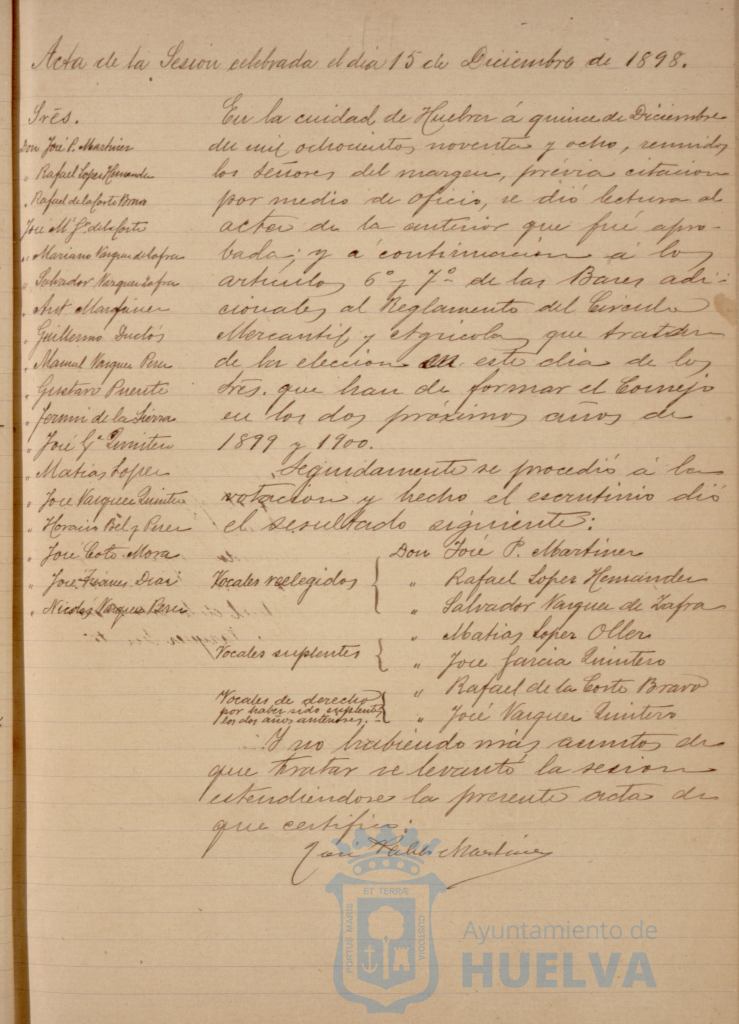 Acta de la Sesion celebrada el dia 15 de Diciembre de 1898.
Sres.
Don José P. Martinez
" Rafael Lopez Hernandez
" Rafael de la Corte Bravo
José Mª Gª de la Corte
" Mariano Vazquez de Zafra
" Salvador Vazquez Zafra
" Ant. Martinez
" Guillermo Duclós
" Manuel Vazquez Perez
" Gustavo Puente
" Fermin de la Sierra
" José Gª Quintero
" Matias Lopez
" José Vazquez Quintero
" Horacio Bel y Perez
" José Coto Mora
" José Diaz
" Nicolás Vazquez Perez
En la cuidad de Huelva á quince de Diciembre
de mil ochocientos noventa y ocho, reunidos
los señores del margen, prévia citacion
por medio de oficio, se dió lectura al
acta de la anterior que fué apro-
bada; y á continuacion á los
articulos 6º y 7º de las Bases adi-
cionales al Reglamento del Circulo
Mercantil y Agricola que tratan
de la eleccion en este dia de los
Sres. que han de formar el Consejo
en los dos próximos años de
1899 y 1900.
Seguidamente se procedió á la
votacion y hecho el escrutinio dió
el resultado siguiente:
Vocales reelegidos
Don José P. Martinez
" Rafael Lopez Hernandez
" Salvador Vazquez de Zafra
Vocales suplentes
" Matias Lopez Oller
" José Garcia Quintero
Vocales de derecho
por haber sido suplentes
los dos años anteriores.
" Rafael de la Corte Bravo
" José Vazquez Quintero
Y no habiendo más asuntos de
que tratar se levantó la sesion
estendiendose la presente acta de
que certifico:
José Pablo Martinez
PORTUS MARIS
ET TERRÆ
CUSTODIA
Ayuntamiento de
HUELVA